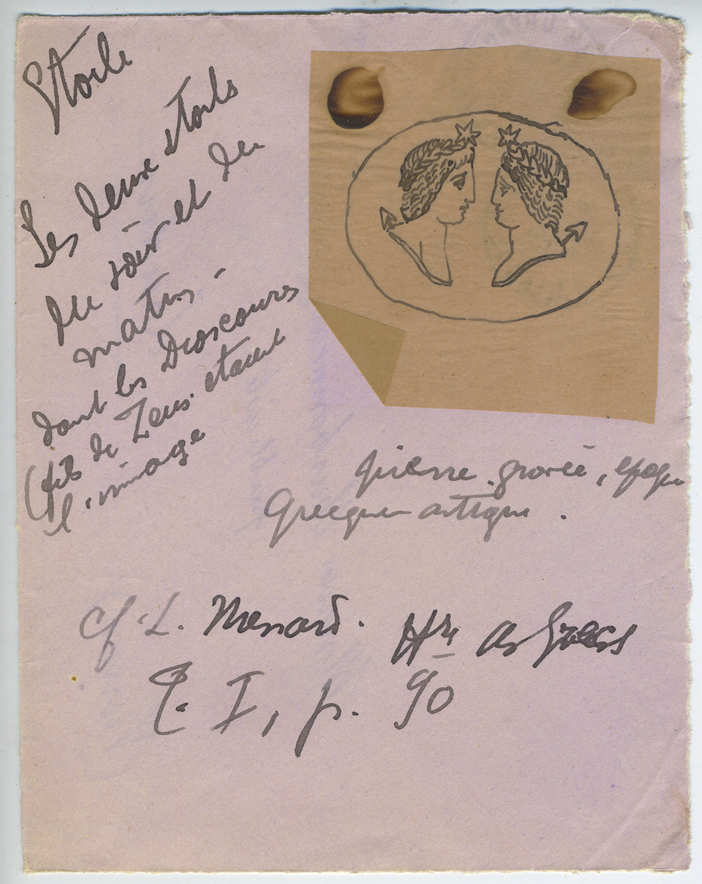 Etoile
Les deux etoiles
du soir et du
matin.
dont les Dioscoures
(fils de Zeus etaient
l'image
pierre gravée, epoque
Grecque antique.
cf. L. Menard. Hre des Grecs
T. I, p. 90